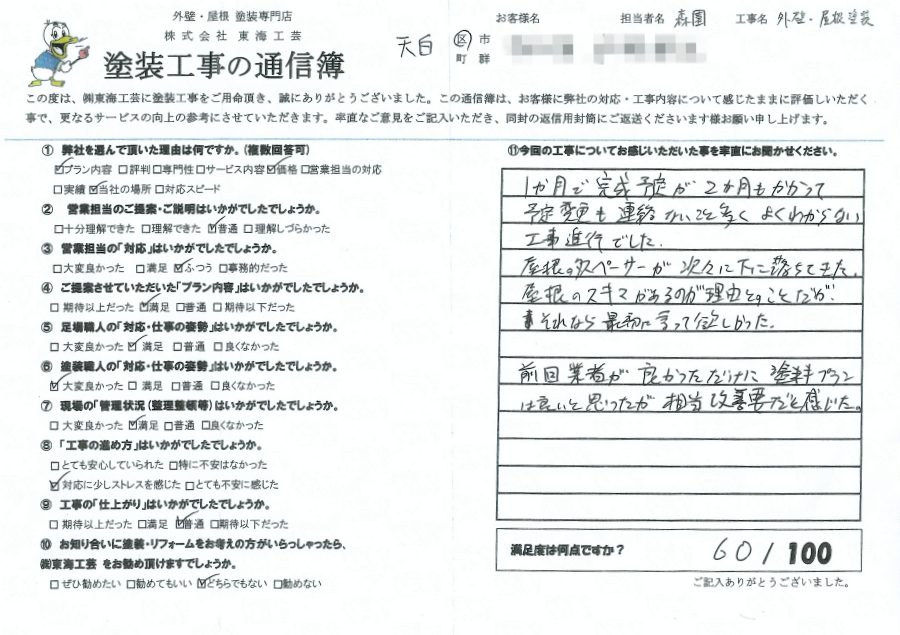 外壁・屋根 塗装専門店
株式会社 東海工芸
塗装工事の通信簿
天白 区 市 町 群
お客様名
担当者名 森園
工事名 外壁・屋根塗装
この度は、㈱東海工芸に塗装工事をご用命頂き、誠にありがとうございました。この通信簿は、お客様に弊社の対応・工事内容について感じたままに評価しいただく
事で、更なるサービスの向上の参考にさせていただきます。率直なご意見をご記入いただき、同封の返信用封筒にご返送くださいます様お願い申し上げます。
① 弊社を選んで頂いた理由は何ですか。(複数回答可)
☑プラン内容 □評判 □専門性 □サービス内容 ☑価格 □営業担当の対応
□実績 ☑当社の場所 □対応スピード
② 営業担当のご提案・ご説明はいかがでしたでしょうか。
□十分理解できた □理解できた ☑普通 □理解しづらかった
③ 営業担当の「対応」はいかがでしたでしょうか。
□大変良かった □満足 ☑ふつう □事務的だった
④ ご提案させていただいた「プラン内容」はいかがでしたでしょうか。
□期待以上だった ☑満足 □普通 □期待以下だった
⑤ 足場職人の「対応・仕事の姿勢」はいかがでしたでしょうか。
□大変良かった ☑満足 □普通 □良くなかった
⑥ 塗装職人の「対応・仕事の姿勢」はいかがでしたでしょうか。
☑大変良かった □満足 □普通 □良くなかった
⑦ 現場の「管理状況(整理整頓等)はいかがでしたでしょうか。
□大変良かった ☑満足 □普通 □良くなかった
⑧ 「工事の進め方」はいかがでしたでしょうか。
□とても安心していられた □特に不安はなかった
☑対応に少しストレスを感じた □とても不安に感じた
⑨ 工事の「仕上がり」はいかがでしたでしょうか。
□期待以上だった □満足 ☑普通 □期待以下だった
⑩ お知り合いに塗装・リフォームをお考えの方がいらっしゃったら、
㈱東海工芸 をお勧め頂けますでしょうか。
□ぜひ勧めたい □勧めてもいい ☑どちらでもない □勧めない
⑪今回の工事についてお感じいただいた事を率直にお聞かせください。
1か月で完成予定が2か月もかかって
予定変更も連絡ないこと多くよくわからない
工事進行でした。
屋根のスペーサーが次々に下に落ちてきた。
屋根のスキマがあるのが理由とのことだが、
それなら最初に言って欲しかった。
前回業者が良かっただけに塗料プラン
は良いと思ったが相当改善要だと感じた。
満足度は何点ですか? 60/100
ご記入ありがとうございました。